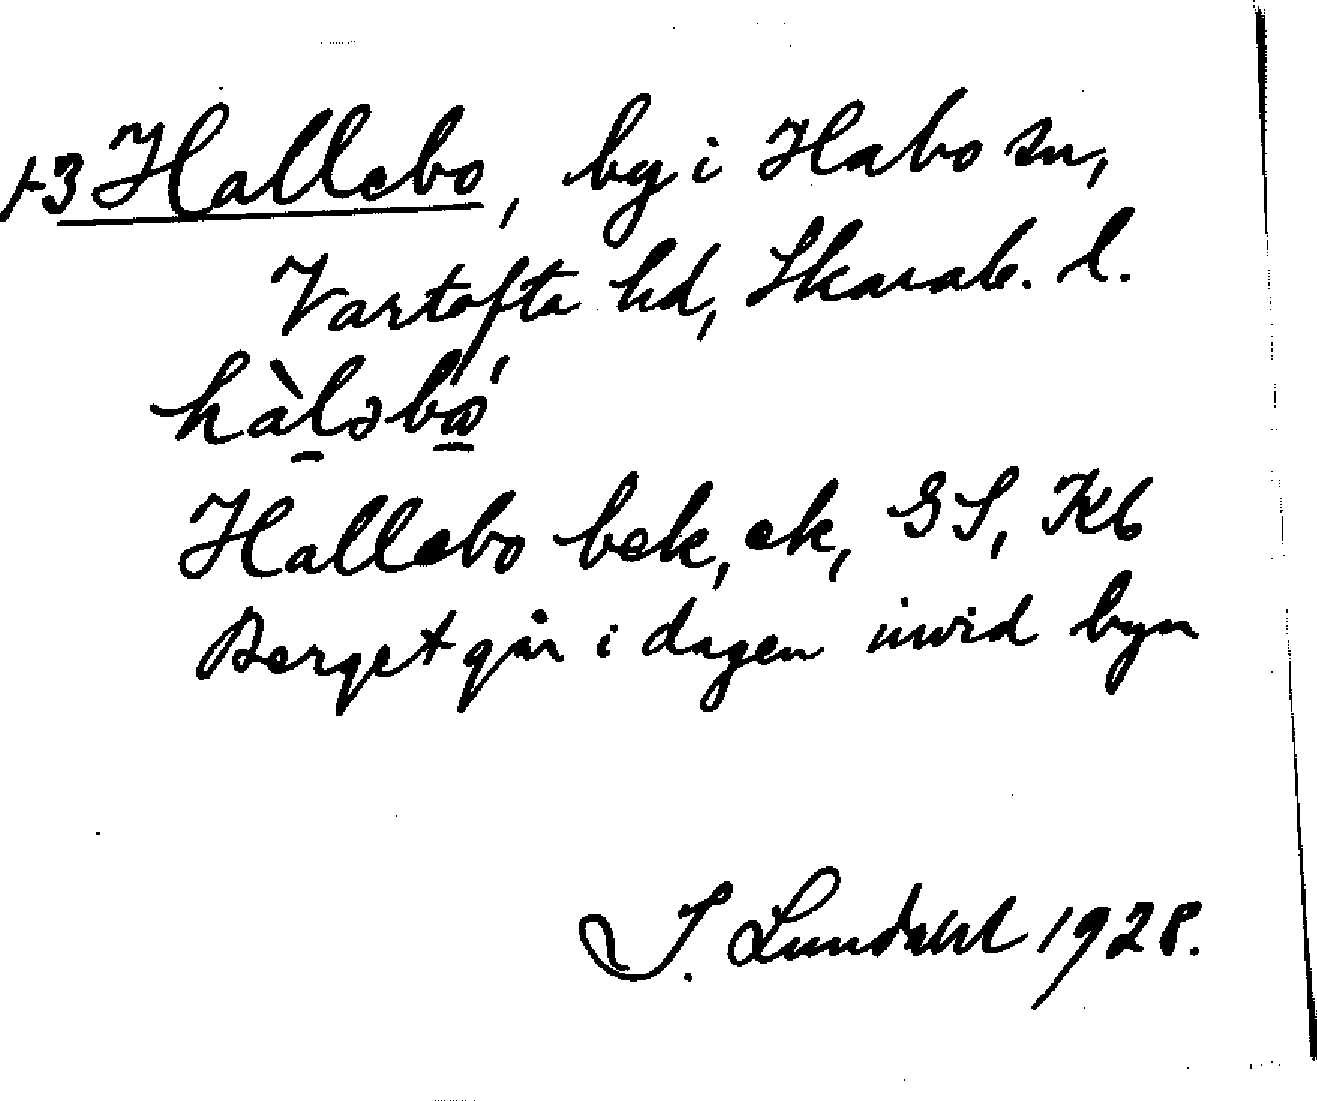 +3 Hallebo, by i Habo sn,
Vartofta hd, Skarab. l.
hàləbǿ
Hallebo bek, ek, GS, Kb
Berget går i dagen invid byn
I. Lundahl 1928.